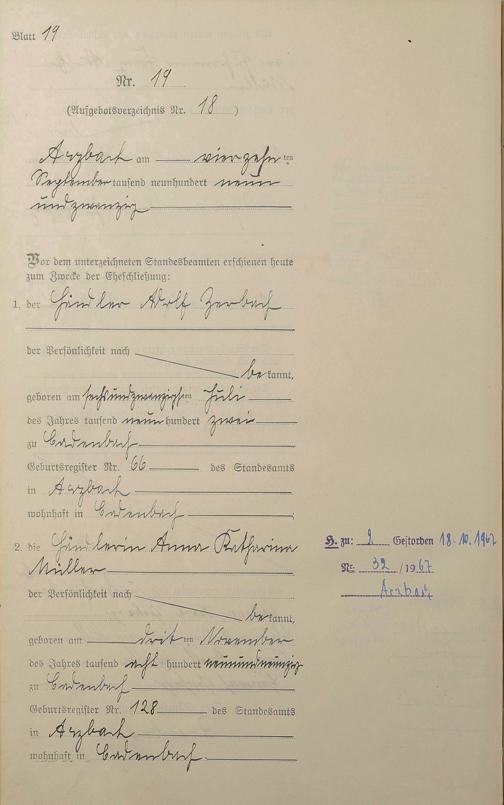 Blatt 19
Nr. 19
(Aufgebotsverzeichnis Nr. 18)
Arzbach am vierzehnten
September tausend neunhundert neun
undzwanzig
Vor dem unterzeichneten Standesbeamten erschienen heute
zum Zwecke der Eheschließung:
1. der Händler Adolf Zerbach
der Persönlichkeit nach
bekannt,
geboren am sechsundzwanzigsten Juli
des Jahres tausend neunhundert zwei
zu Cadenbach
Geburtsregister Nr. 66 des Standesamts
in Arzbach
wohnhaft in Cadenbach
2. die Händlerin Anna Katharina
Müller
der Persönlichkeit nach
bekannt,
geboren am dritten November
des Jahres tausend acht hundert neunundneunzig
zu Cadenbach
Geburtsregister Nr. 128 des Standesamts
in Arzbach
wohnhaft in Cadenbach
H. zu: 2 Gestorben 18.10.1967
Nr. 32 / 1967
Arzbach